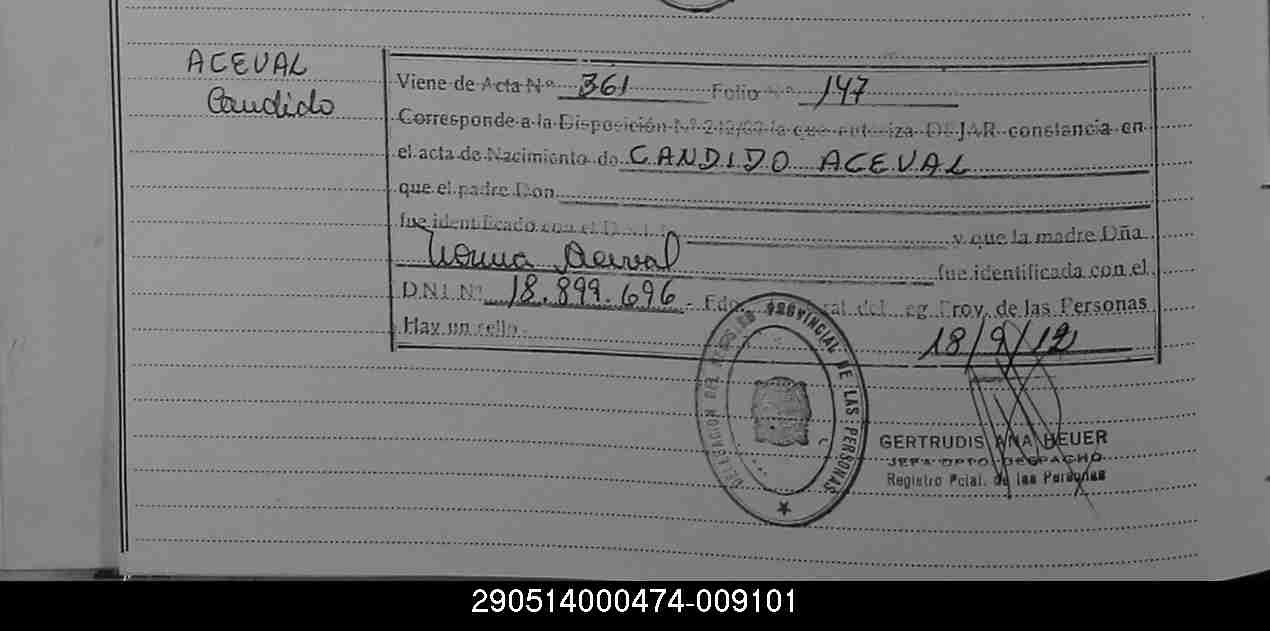 ACEVAL
Candido
Viene de Acta Nº 361 Folio Nº 147
Corresponde a la Disposición Nº la que autoriza DEJAR constancia en
el acta de Nacimiento de CANDIDO ACEVAL
que el padre Don
fue identificado con el D.N.I. Nº y que la madre Dña
Norma Aceval fue identificada con el
D.N.I. Nº 18.899.696 - Fdo. ral del eg Prov. de las Personas
Hay un sello. 18/9/12
DELEGACION DEL REGISTRO PROVINCIAL DE LAS PERSONAS
GERTRUDIS ANA HEUER
JEFA DPTO. DESPACHO
Registro Pcial. de las Personas
290514000474-009101